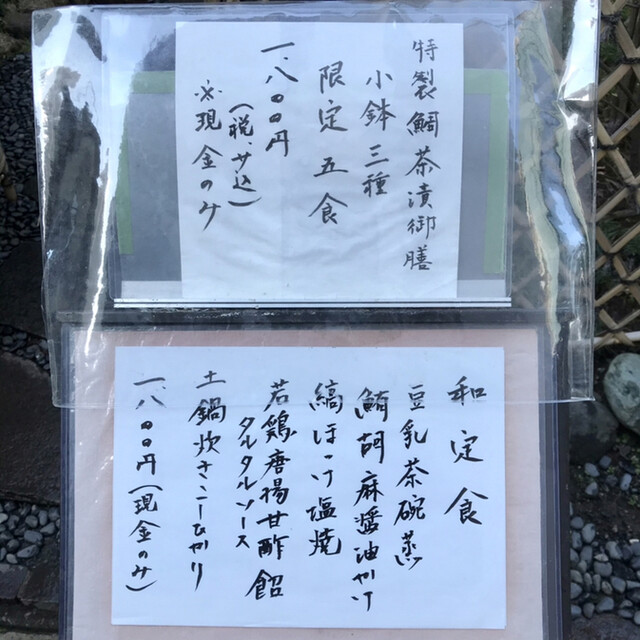 特製鯛茶漬御膳
小鉢三種
限定五食
一、八〇〇円
(税、サ込)
※現金のみ
和定食
豆乳茶碗蒸
鮪胡麻醤油かけ
縞ほっけ塩焼
若鶏唐揚甘酢餡
タルタルソース
土鍋炊きこしひかり
一、八〇〇円(現金のみ)